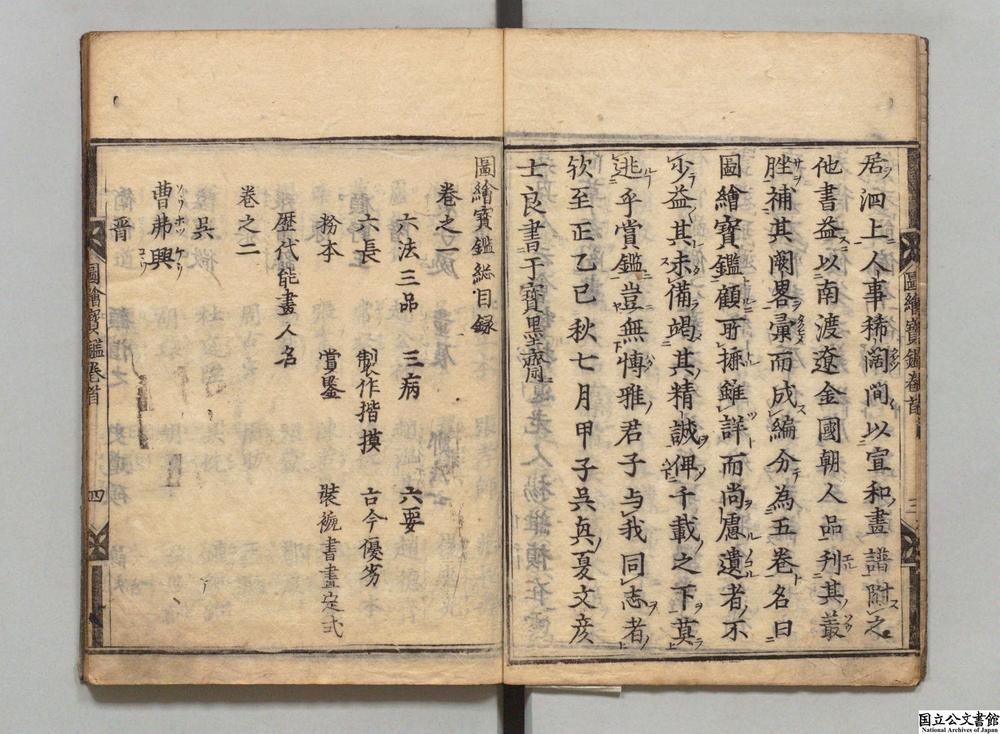 居泗上人事稀闊間以宣和畫譜附之
他書益以南渡遼金國朝人品刊其叢
脞補其闕畧彙而成編分為五卷名曰
圖繪寶鑑顧所摭雖詳而尚慮遺者不
少益其未備竭其精誠俾千載之下莫
逃乎賞鑑豈無慱雅君子与我同志者
欤至正乙巳秋七月甲子吳㒷夏文彦
士良書于寶墨齋
圖繪寶鑑卷首
三
圖繪寶鑑総目録
卷之一
六法三品 三病 六要
六長 製作揩摸 古今優劣
粉本 賞鑒 裝褫書畫定式
歴代能畫人名
卷之二
吳
曹弗興
晋
圖繪寶鑑卷首
四
国立公文書館
National Archives of Japan